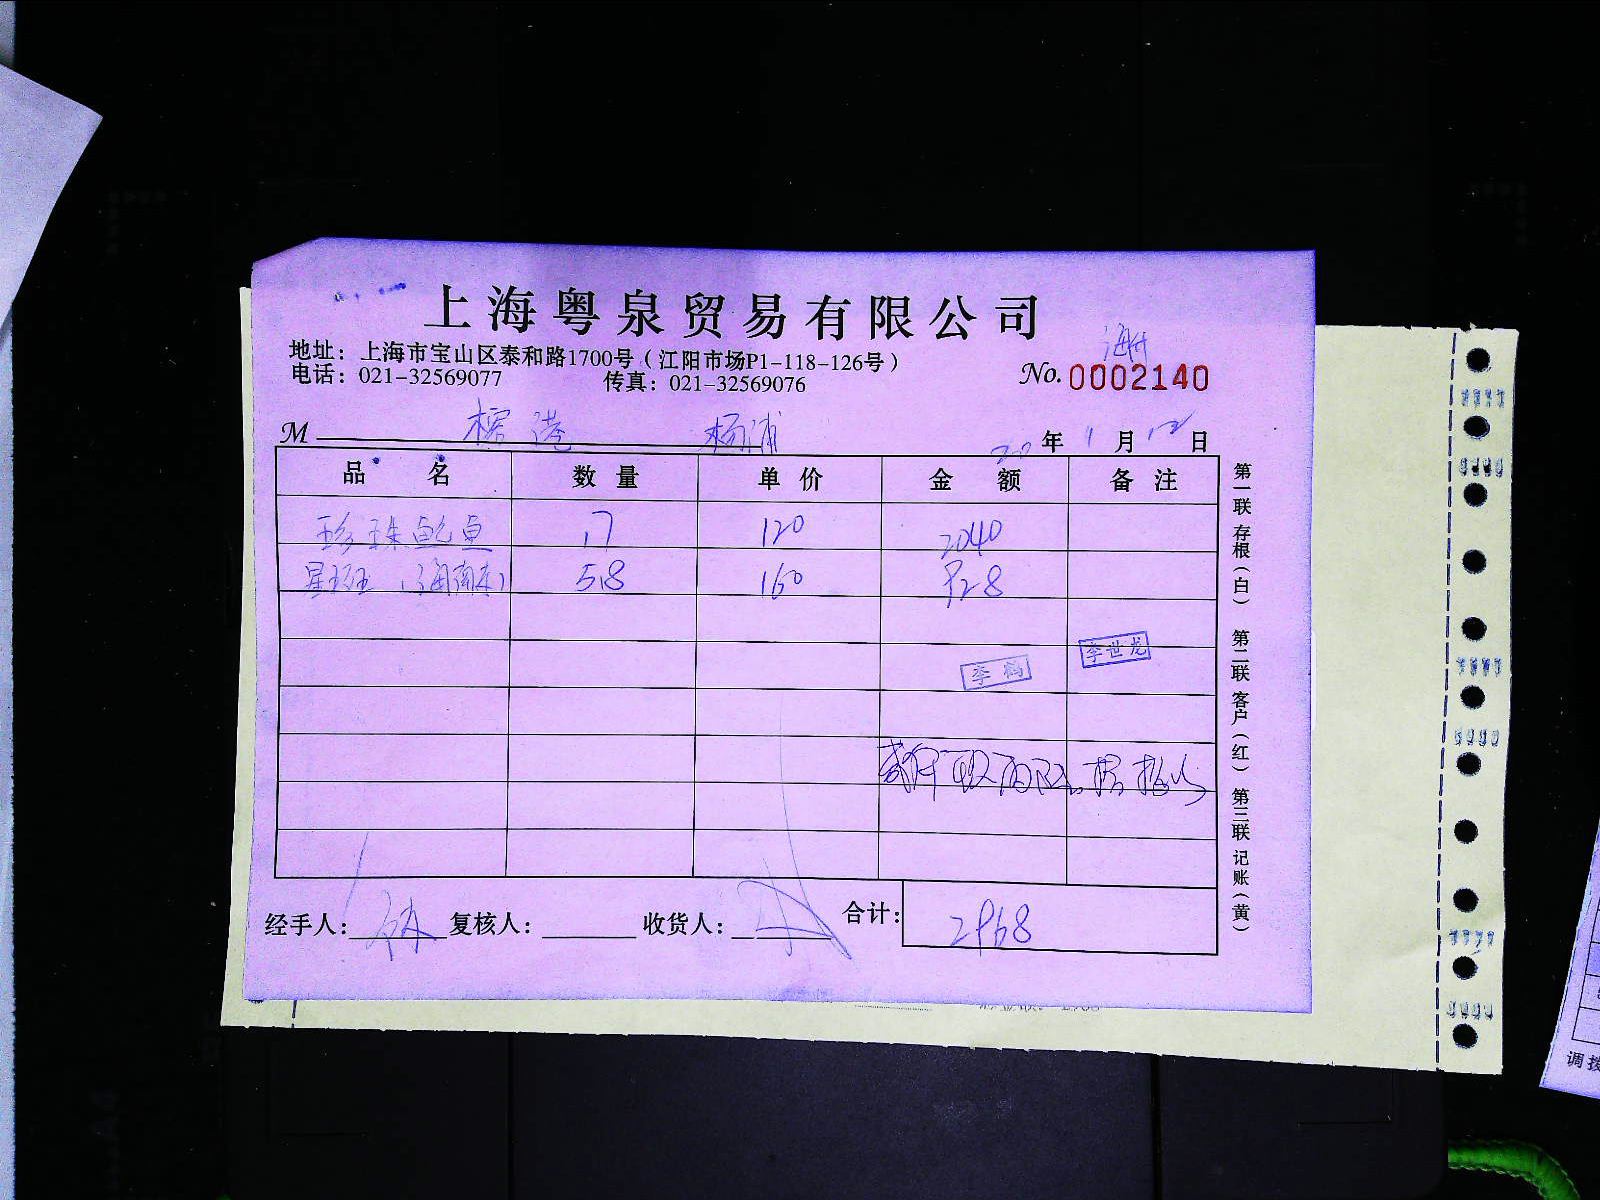 上海粤泉贸易有限公司
地址：上海市宝山区泰和路1700号（江阳市场P1-118-126号）
电话：021-32569077 传真：021-32569076
No. 0002140
M 榕港 杨浦 年 1 月 12 日
品名 数量 单价 金额 备注
珍珠 17 120 2040
星斑（海南） 5.8 160 928
李鹤 李世龙
经手人： 复核人： 收货人： 合计： 2968
第一联 存根（白） 第二联 客户（红） 第三联 记账（黄）
调拨